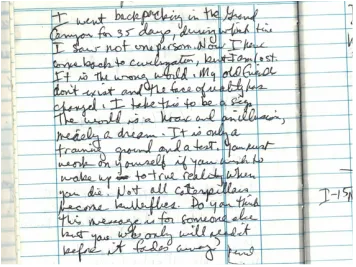 I went backpacking in the Grand
Canyon for 35 days, during which time
I saw not one person. Now I have
come back to civilization, but I am lost.
It is the wrong world. My old friends
don't exist and the face of reality has
changed. I take this to be a sign
The world is a hoax and an illusion,
merely a dream. It is only a
training ground and a test. You must
work on yourself if you wish to
wake up to true reality when
you die. Not all caterpillars
become butterflies. Do you think
this message is for someone else
but you who only will read it
before it fades away
I-15